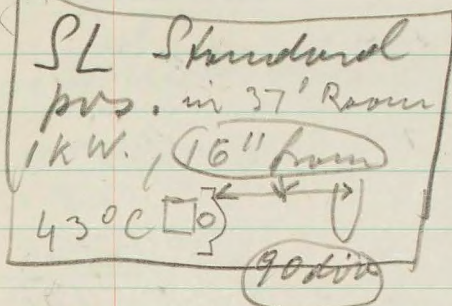 SL Standard
pos. in 37' Room
1KW., 16" from
43°C
90